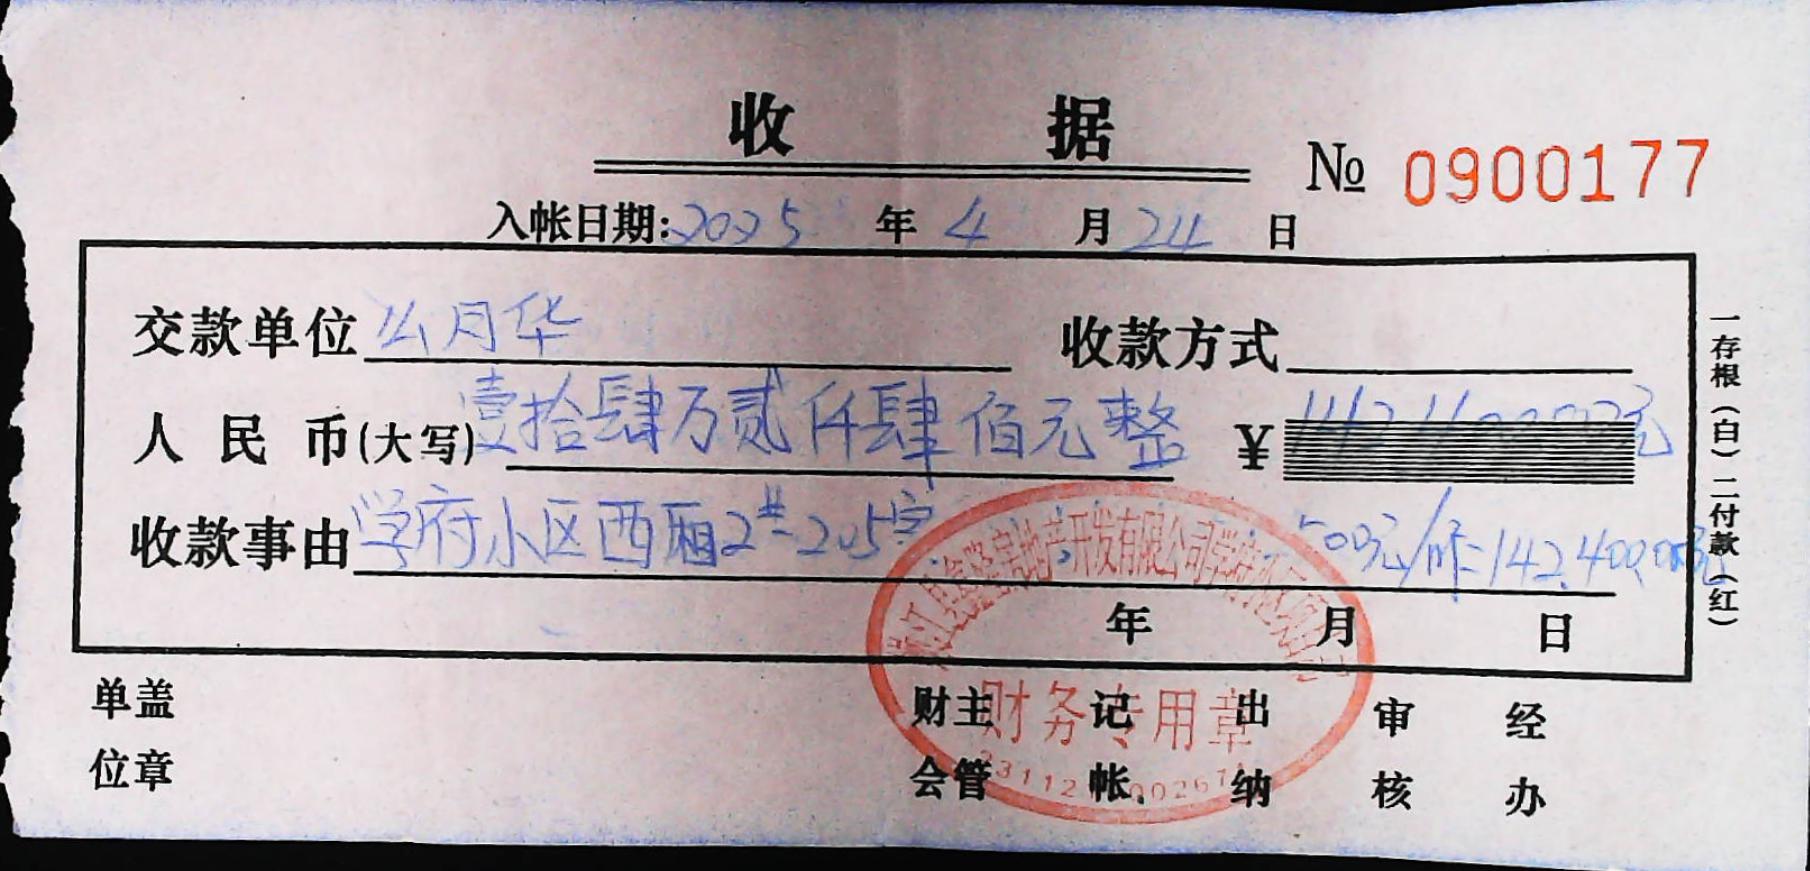 收 据
№ 0900177
入帐日期:2025 年 4 月 24 日
交款单位 么月华 收款方式
人民币(大写) 壹拾肆万贰仟肆佰元整 ¥ 142400.00元
收款事由 学府小区西厢2#-205室 500元/㎡=142,400.00元
年 月 日
一存根(白)二付款(红)
单位盖章 财会主管 记帐 出纳 审核 经办
房地产开发有限公司学府
财务专用章